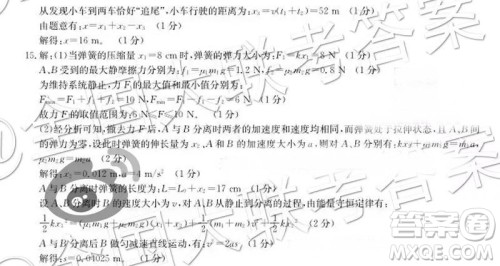 从发现小车到两车恰好“追尾”,小车行驶的距离为:x₃=v(t₁+t₂)=52 m (1分)
由题意有:x=x₁+x₂-x₃ (1分)
解得:x=16 m。 (1分)
15.解:(1)当弹簧的压缩量 x₁=8 cm 时,弹簧的弹力大小为:F₁=kx₁=8 N (1分)
A、B受到的最大静摩擦力分别为:f₁=μ₁m₁g=1.2 N,f₂=μ₂m₂g=0.8 N (1分)
为维持系统静止,力 F 的最大值和最小值分别为:
Fmax=F₁+f₁+f₂=10 N,Fmin=F₁-f₁-f₂=6 N (1分)
故力 F 的取值范围为:6 N≤F≤10 N。 (1分)
(2)经分析可知,撤去力 F 后,A 与 B 分离时两者的加速度和速度均相同,而弹簧处于拉伸状态,且 A、B 间
的弹力为零,设此时弹簧的伸长量为 x₂,A 和 B 的加速度大小为 a,则对 A、B 分别有:kx₂+μ₁m₁g=m₁a,
μ₂m₂g=m₂a (2分)
解得:x₂=0.012 m,a=1 m/s² (1分)
A 与 B 分离时弹簧的长度为:L=L₀+x₂=17 cm (1分)
设 A、B 分离时的速度大小为 v,对 A、B 从静止到分离的过程,由能量守恒定律有:
½kx₁²=(μ₁m₁g+μ₂m₂g)(x₁+x₂)+½(m₁+m₂)v²+½kx₂² (2分)
A 与 B 分离后 B 做匀减速直线运动,有:v²=2as, (1分)
解得:s=0.04025 m。 (1分)